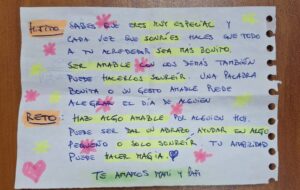 HIJITO: SABES QUE ERES MUY ESPECIAL Y
CADA VEZ QUE SONRÍES HACES QUE TODO
A TU ALREDEDOR SEA MÁS BONITO.
SER AMABLE CON LOS DEMÁS TAMBIÉN
PUEDE HACERLOS SONREÍR. UNA PALABRA
BONITA O UN GESTO AMABLE PUEDE
ALEGRAR EL DÍA DE ALGUIEN
RETO: HAZ ALGO AMABLE POR ALGUIEN HOY.
PUEDE SER DAR UN ABRAZO, AYUDAR EN ALGO
PEQUEÑO O SOLO SONREÍR. TU AMABILIDAD
PUEDE HACER MAGIA.
TE AMAMOS MAMI Y PAPI